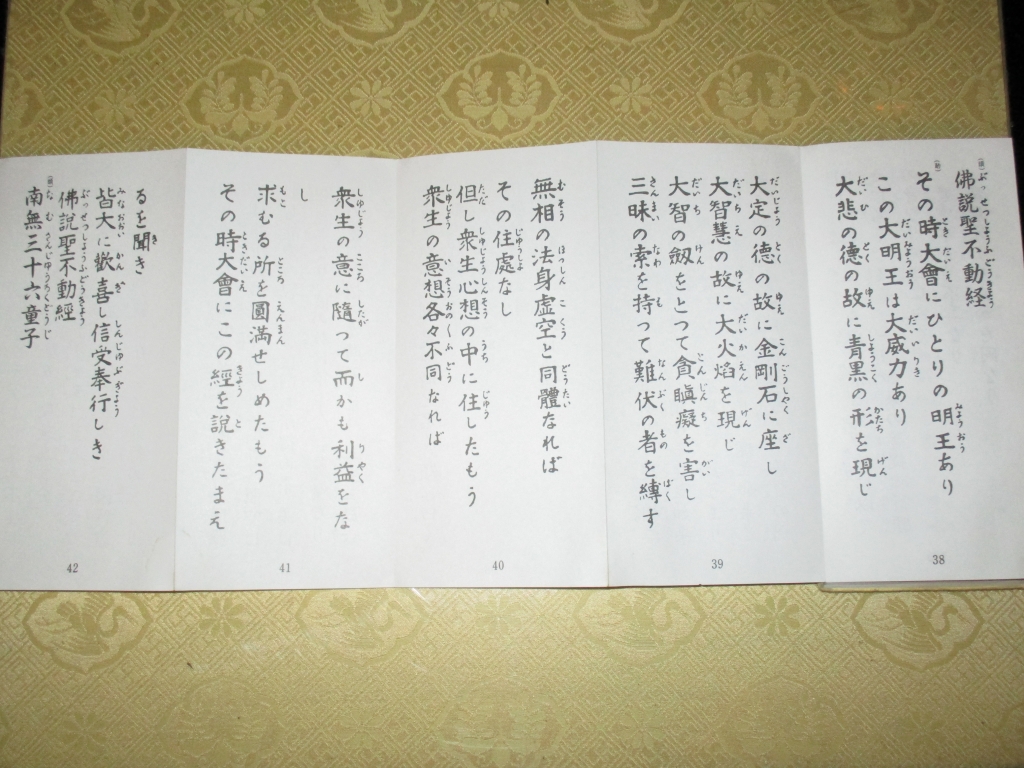 佛說聖不動経
その時大會にひとりの明王あり
この大明王は大威力あり
大悲の徳の故に青黒の形を現じ
38
大定の徳の故に金剛石に座し
大智慧の故に大火焰を現じ
大智の劔をとって貪瞋癡を害し
三昧の索を持って難伏の者を縛す
39
無相の法身虚空と同體なれば
その住處なし
但し衆生心想の中に住したもう
衆生の意想各々不同なれば
40
衆生の意に隨って而かも利益をな
し
求むる所を圓滿せしめたもう
その時大會にこの經を說きたまえ
41
るを聞き
皆大に歡喜し信受奉行しき
佛説聖不動經
南無三十六童子
42